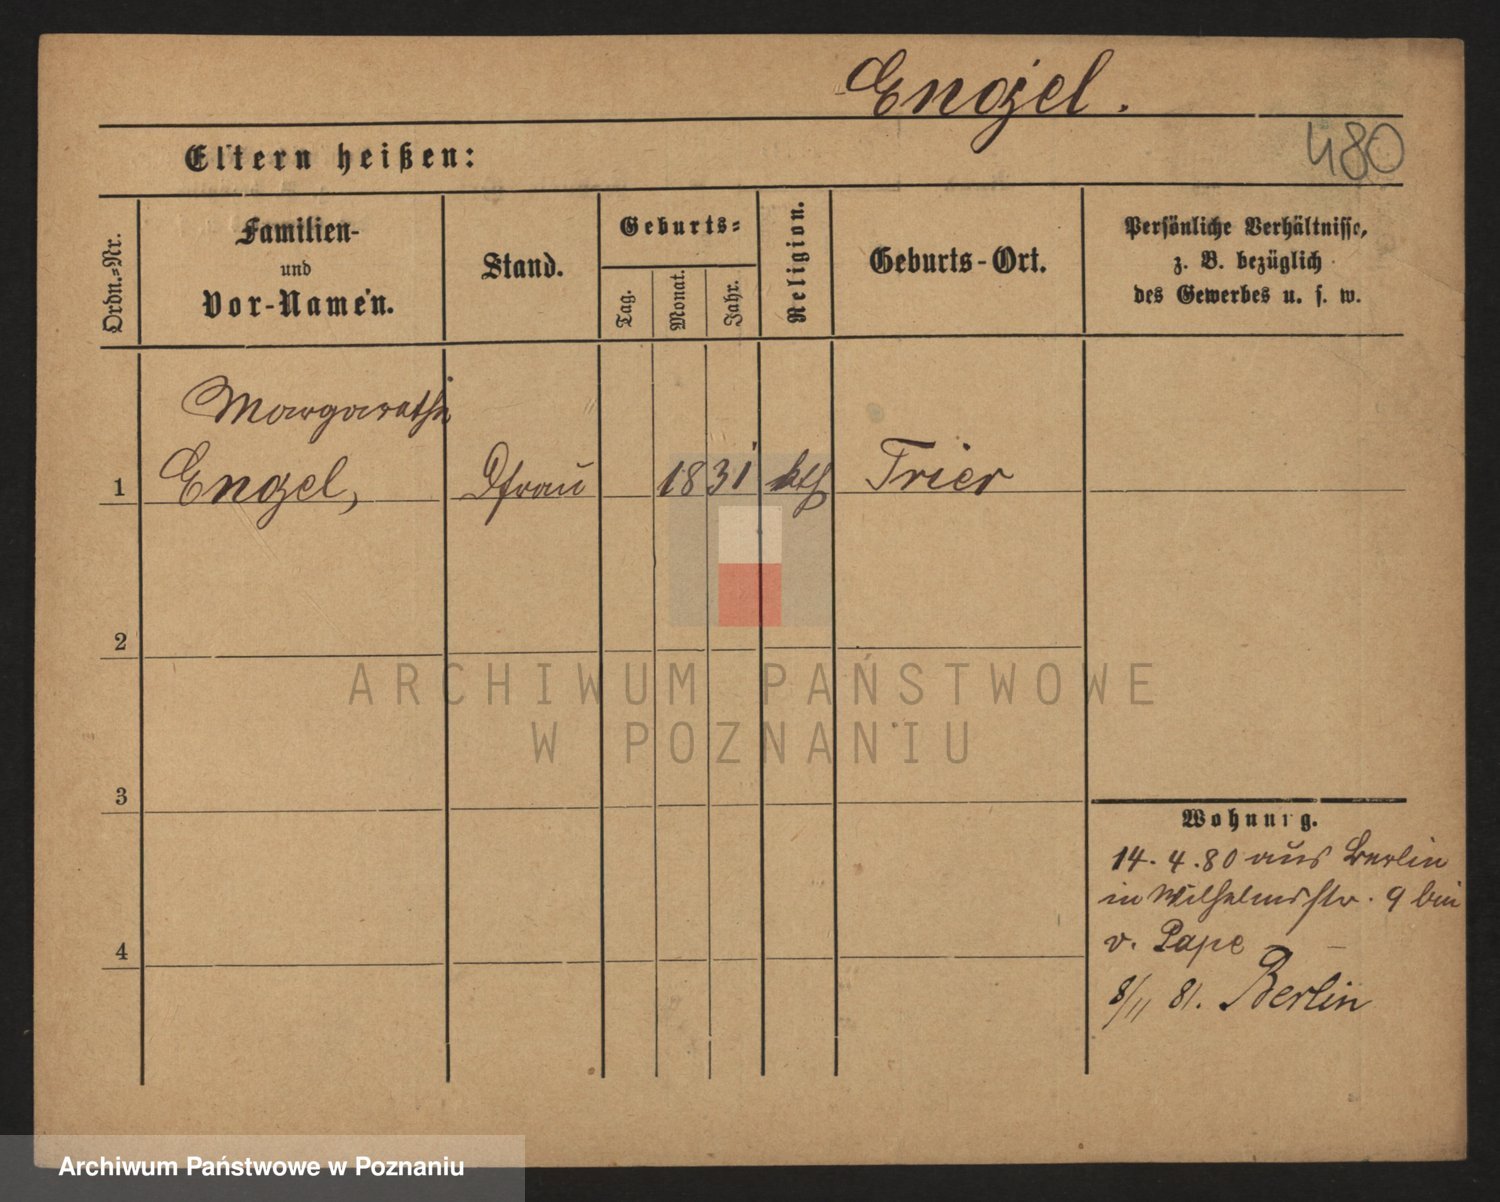 Engel.
480
Eltern heißen:
Ordn.=Nr.
Familien-
und
Vor-Namen.
Stand.
Geburts=
Tag.
Monat.
Jahr.
Religion.
Geburts-Ort.
Persönliche Verhältnisse,
z. B. bezüglich
des Gewerbes u. s. w.
Margarethe
1 Engel, 1831 kth Trier
2
ARCHIWUM PAŃSTWOWE
W POZNANIU
3
Wohnung.
14. 4. 80 aus Berlin
in Wilhelmsstr. 9 bei
v. Pape
4
8/11 81. Berlin
Archiwum Państwowe w Poznaniu